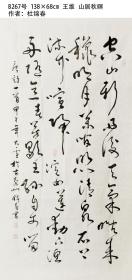 8267号 138×68cm 王维 山居秋暝
作者：杜锦春
空山新雨後天氣晚来
秋明月松間照清泉石上
流竹喧歸浣女蓮動下漁
舟随意春芳歇王孫自可留